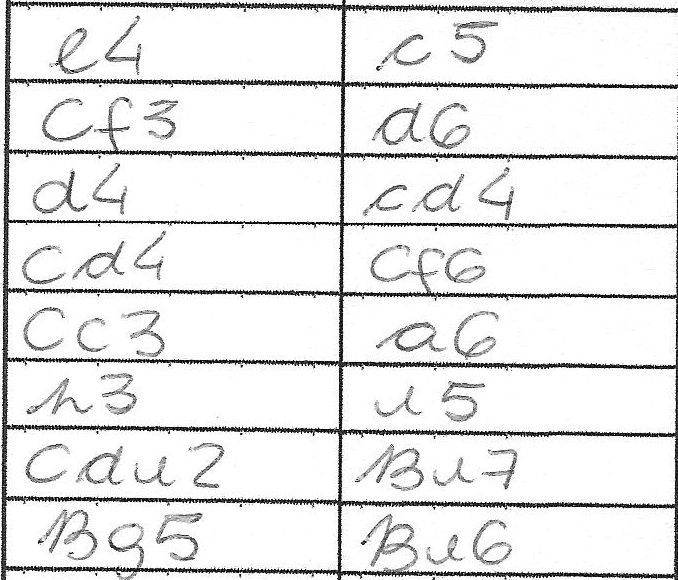 e4 c5
Cf3 d6
d4 cd4
Cd4 Cf6
Cc3 a6
h3 e5
Cde2 Be7
Bg5 Be6